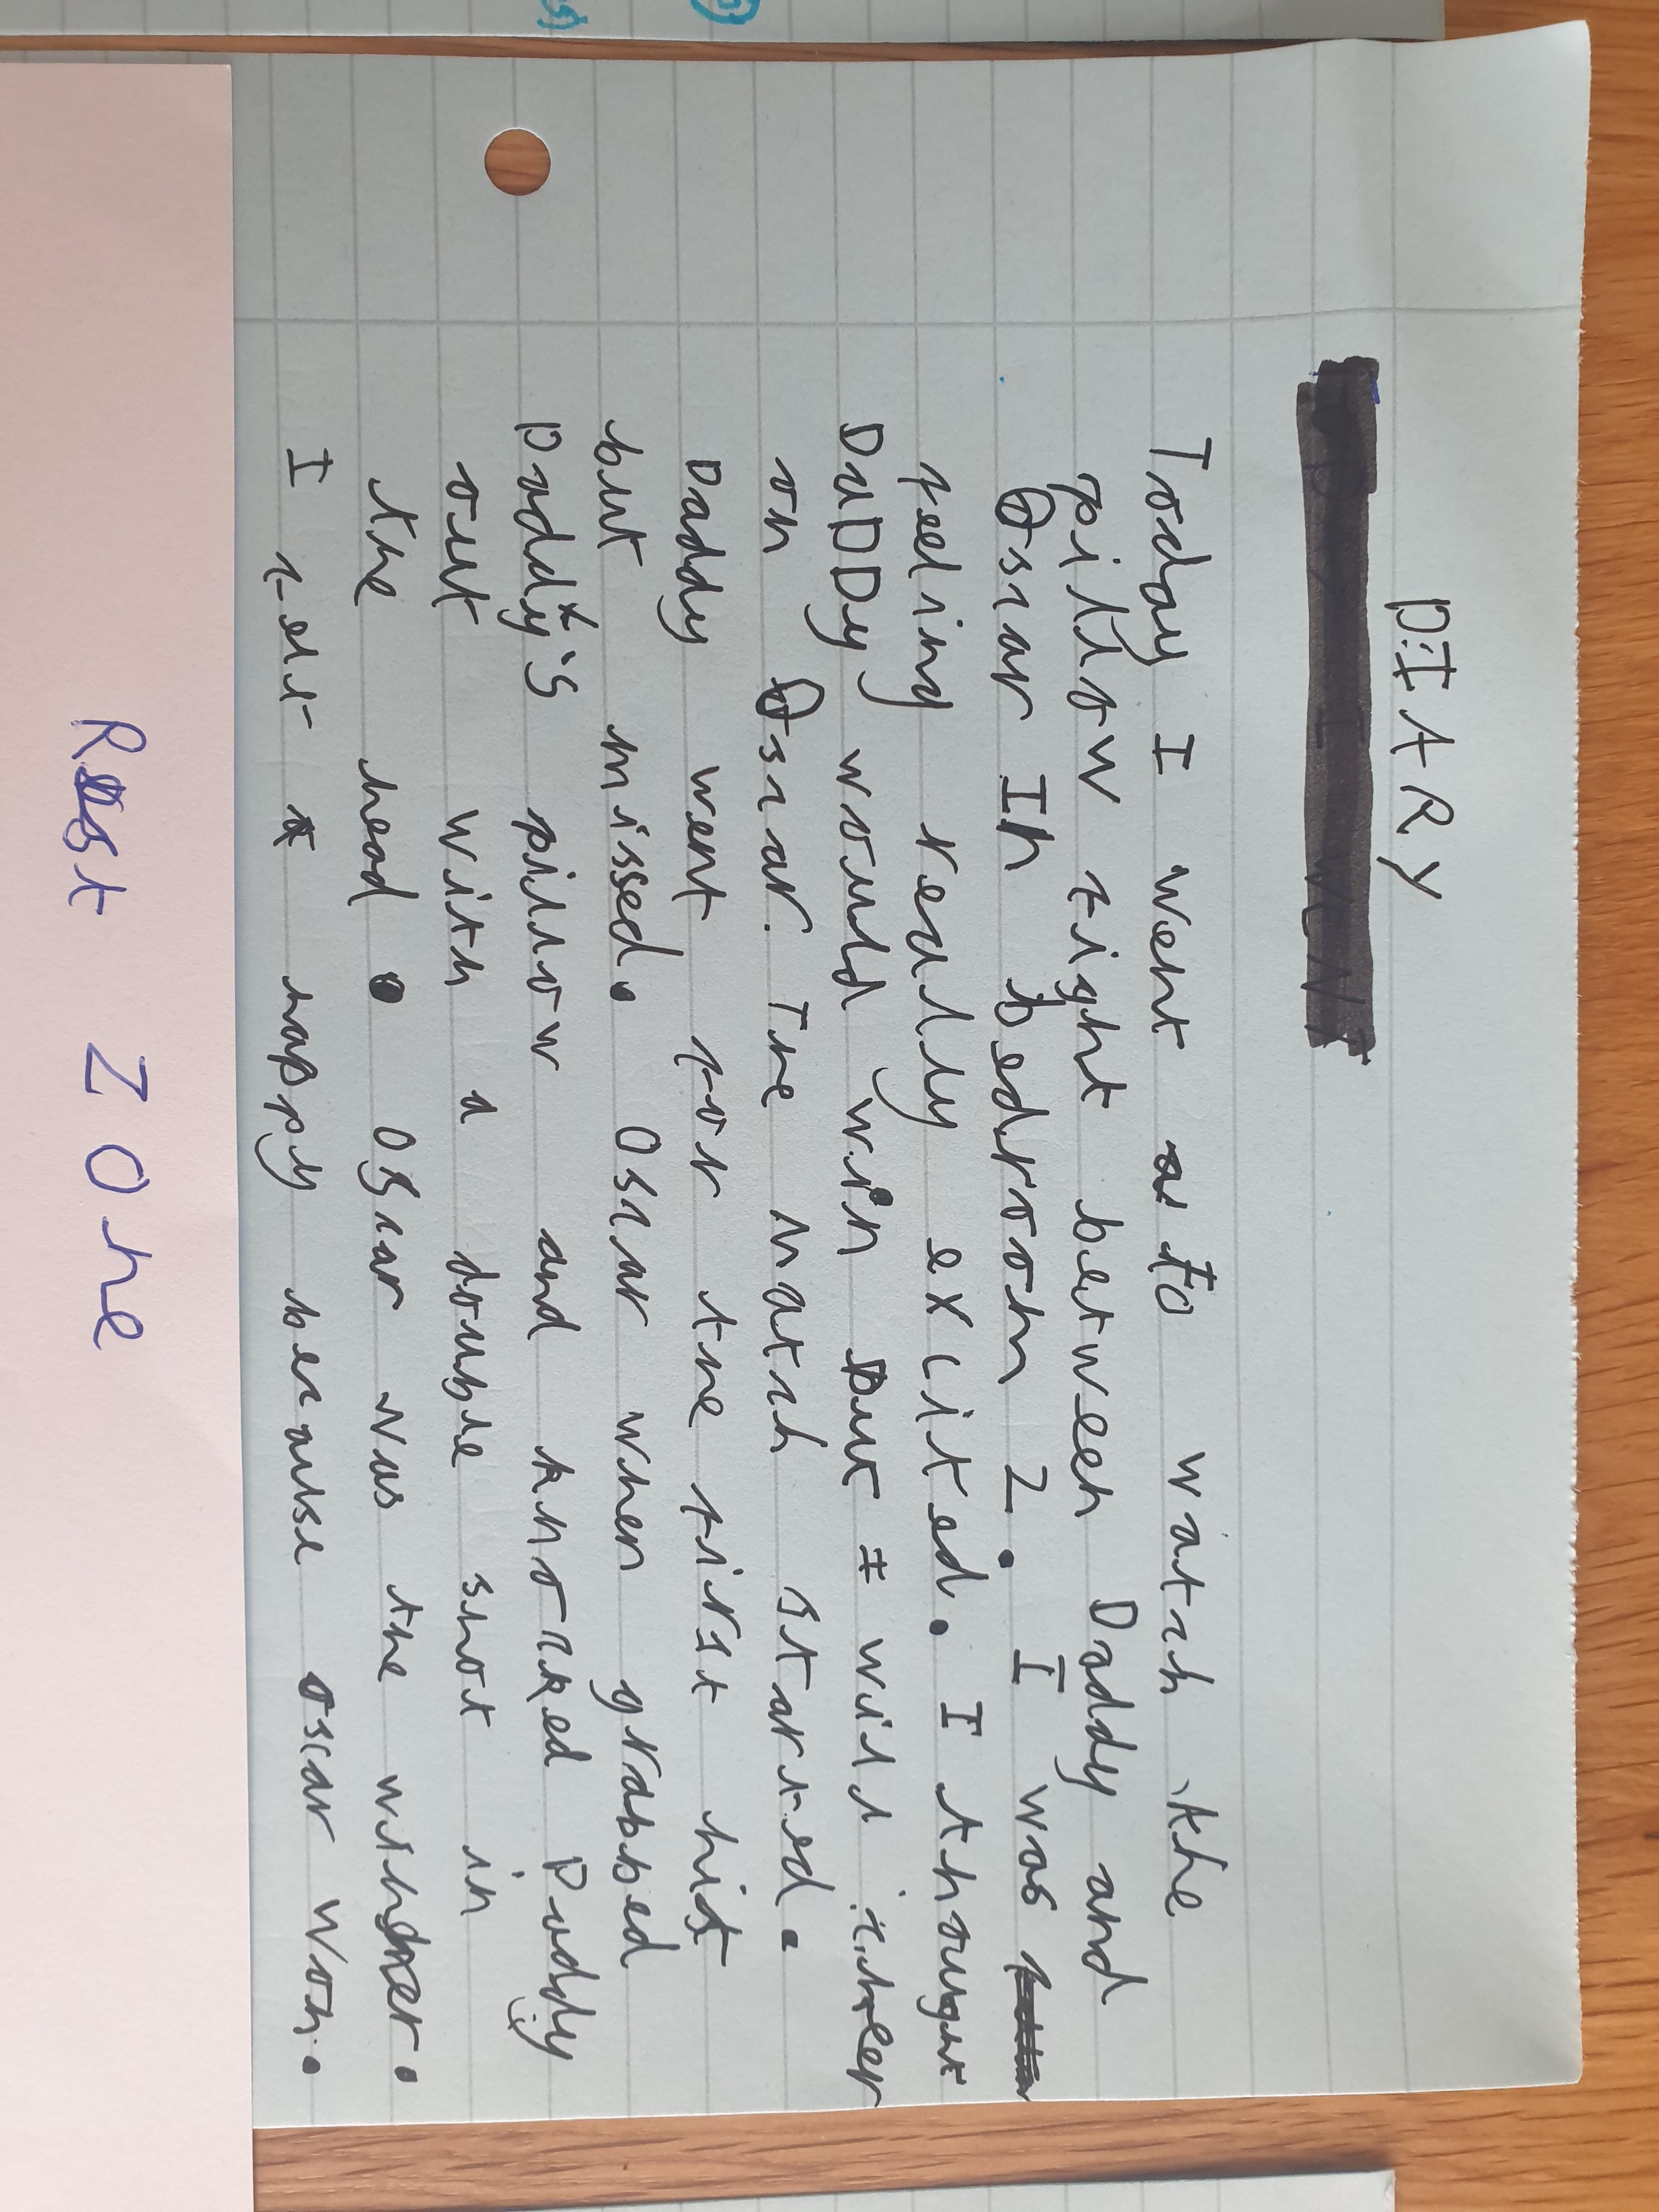 DIARY
Today I went to watch the
pillow fight between Daddy and
Oscar In bedroom 2. I was
feeling really excited. I thought
DaDDy would win but I will cheer
on Oscar. The match started.
Daddy went for the first hit
but missed. Oscar when grabbed
Daddy's pillow and knocked Daddy
out with a double shot in
the head. Oscar was the winner.
I felt happy because oscar won.
Rest Zone